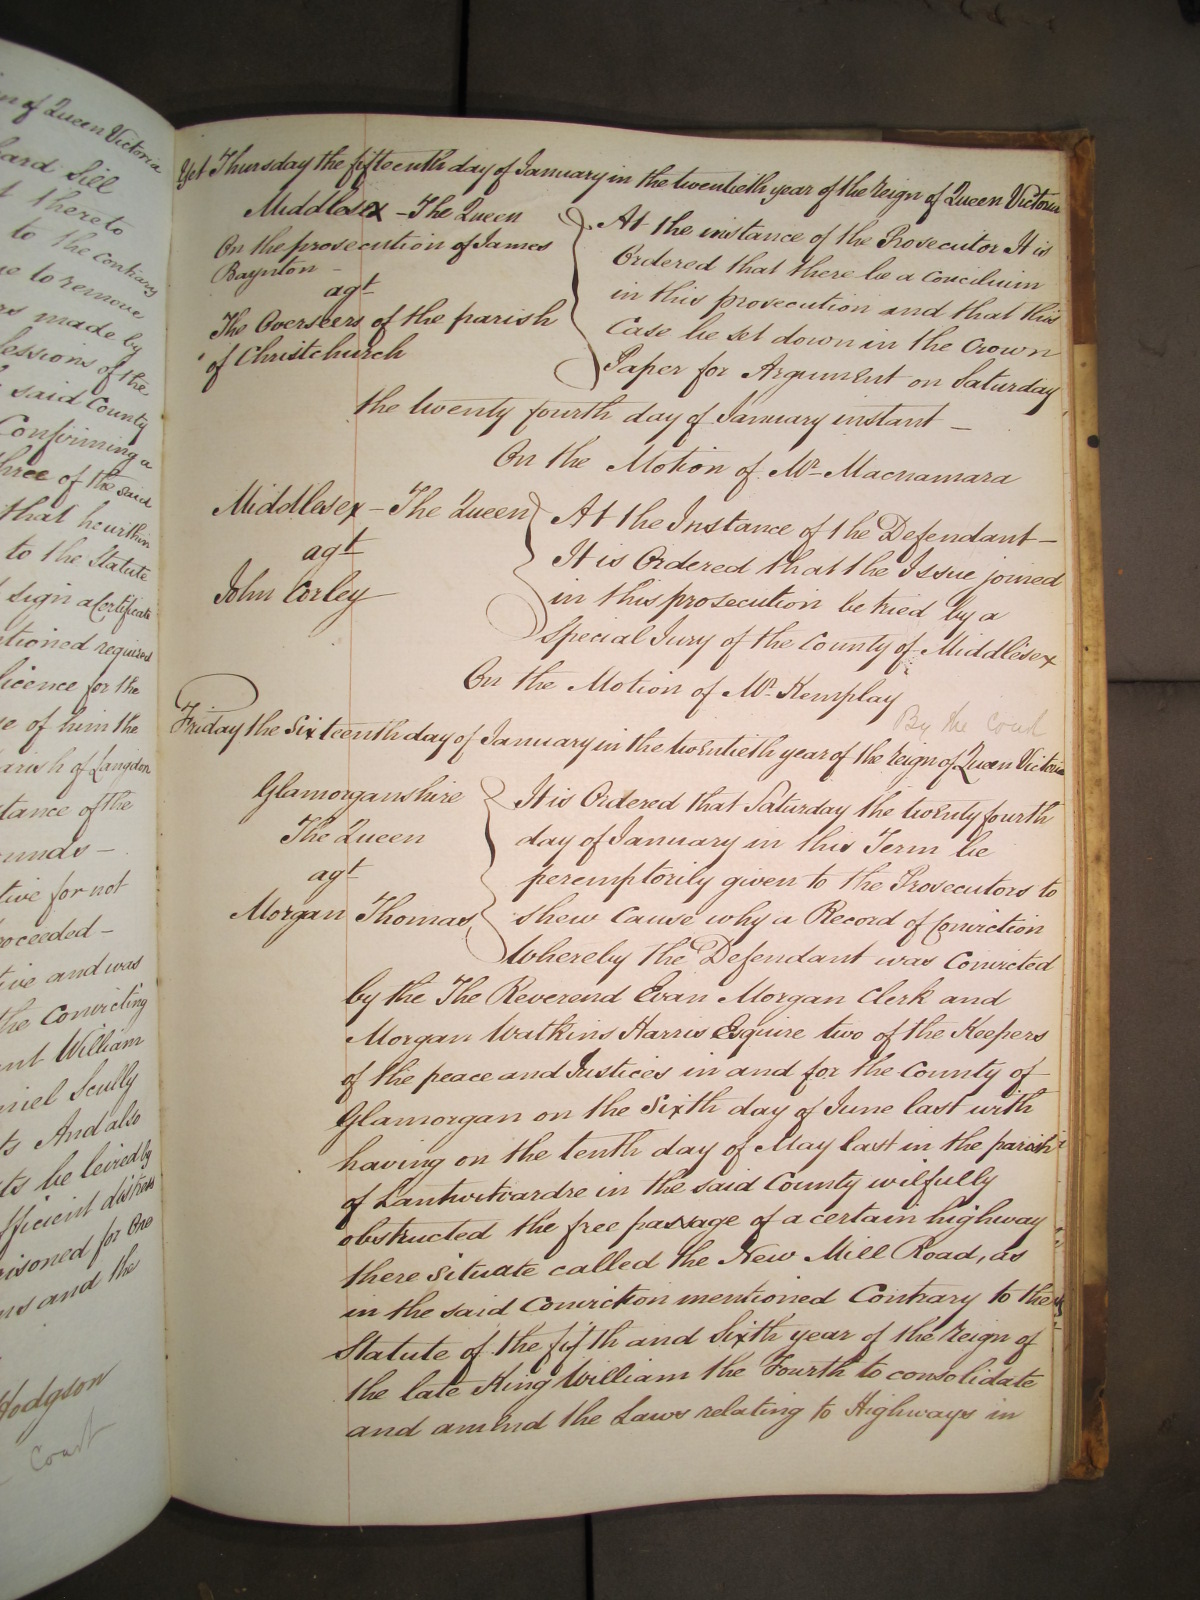 n of Queen Victoria
ard Sill
t thereto
to the contrary
e to remove
rs made by
essions of the
said County
Confirming a
hree of the said
that he within
to the Statute
sign a Certificate
ntioned required
licence for the
e of him the
arish of Langdon
tance of the
unds –
tive for not
oceeded –
ive and was
the convicting
nt William
niel Scully
ts And also
ts be levied by
fficient distress
risoned for one
ns and the
Hodgson
Court
Yet Thursday the fifteenth day of January in the twentieth year of the reign of Queen Victoria
Middlesex – The Queen
On the prosecution of James
Baynton –
agt
The Overseers of the parish
of Christchurch
At the instance of the Prosecutor It is
Ordered that there be a concilium
in this prosecution and that this
Case be set down in the Crown
Paper for Argument on Saturday
the twenty fourth day of January instant –
On the Motion of Mr Macnamara
Middlesex – The Queen
agt
John Corley
At the Instance of the Defendant –
It is Ordered that the Issue joined
in this prosecution be tried by a
Special Jury of the County of Middlesex
On the Motion of Mr Kemplay
By the Court
Friday the Sixteenth day of January in the twentieth year of the reign of Queen Victoria
Glamorganshire
The Queen
agt
Morgan Thomas
It is Ordered that Saturday the twenty fourth
day of January in this Term be
peremptorily given to the Prosecutors to
shew Cause why a Record of Conviction
whereby the Defendant was Convicted
by the The Reverend Evan Morgan Clerk and
Morgan Watkins Harris Esquire two of the Keepers
of the peace and Justices in and for the County of
Glamorgan on the Sixth day of June last with
having on the tenth day of May last in the parish
of Lantwitvardre in the said County wilfully
obstructed the free passage of a certain highway
there situate called the New Mill Road, as
in the said Conviction mentioned Contrary to the
Statute of the fifth and Sixth year of the reign of
the late King William the Fourth to consolidate
and amend the Laws relating to Highways in